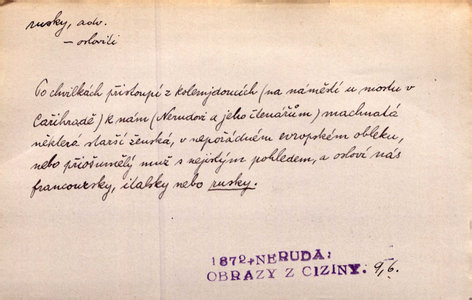 rusky, adv.
– osloviti
Po chvilkách přistoupí z kolemjdoucích (na náměstí u mostu v
Cařihradě) k nám (Nerudovi a jeho čtenářům) machnatá
některá starší ženská, v nepořádném evropském obleku,
nebo přiošumělý muž s nejistým pohledem, a osloví nás
francouzsky, italsky nebo rusky.
1872, NERUDA:
OBRAZY Z CIZINY. 9,6.